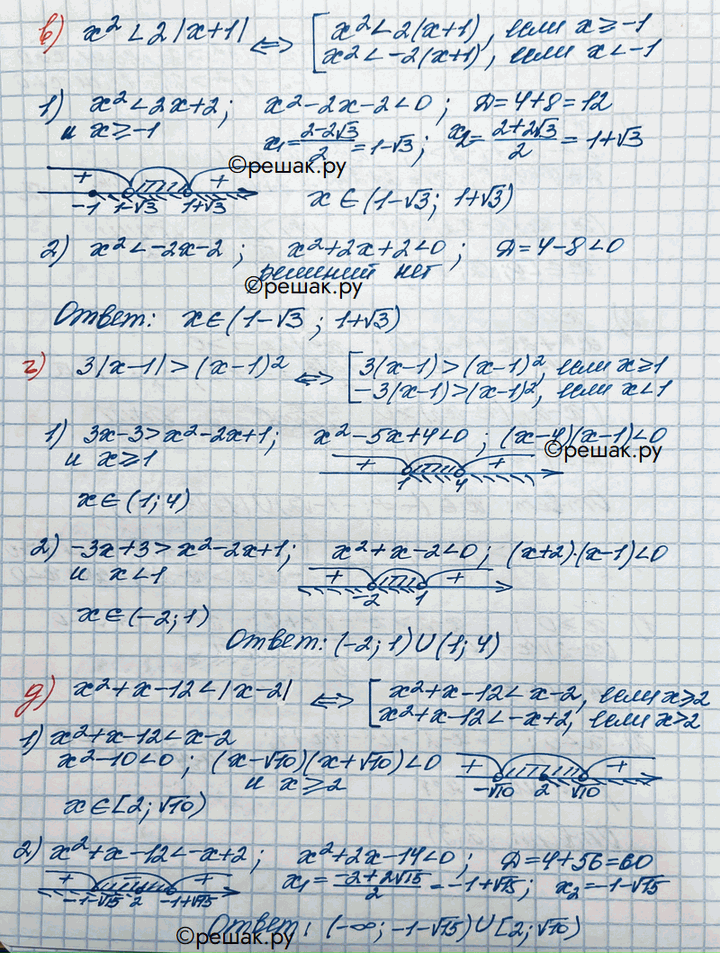 в) x² < 2|x+1| ⇔ [ x² < 2(x+1), если x ≥ -1
x² < -2(x+1), если x < -1
1) x² < 2x+2; x² - 2x - 2 < 0; Д = 4+8 = 12
и x ≥ -1 x₁ = (2-2√3)/2 = 1-√3; x₂ = (2+2√3)/2 = 1+√3
©решак.ру
+ - +
-1 1-√3 1+√3 x ∈ (1-√3; 1+√3)
2) x² < -2x-2; x²+2x+2 < 0; Д = 4-8 < 0
решений нет
©решак.ру
Ответ: x ∈ (1-√3; 1+√3)
г) 3|x-1| > (x-1)² ⇔ [ 3(x-1) > (x-1)², если x ≥ 1
-3(x-1) > (x-1)², если x < 1
1) 3x-3 > x²-2x+1; x²-5x+4 < 0; (x-4)(x-1) < 0
и x ≥ 1
©решак.ру
+ - +
1 4
x ∈ (1; 4)
2) -3x+3 > x²-2x+1; x²+x-2 < 0; (x+2)·(x-1) < 0
и x < 1
+ - +
-2 1
x ∈ (-2; 1)
Ответ: (-2; 1) ∪ (1; 4)
д) x²+x-12 < |x-2| ⇔ [ x²+x-12 < x-2, если x ≥ 2
x²+x-12 < -x+2, если x > 2
1) x²+x-12 < x-2
x²-10 < 0; (x-√10)(x+√10) < 0
и x ≥ 2
+ - +
-√10 2 √10
x ∈ [2; √10)
2) x²+x-12 < -x+2; x²+2x-14 < 0; Д = 4+56 = 60
x₁ = (-2+2√15)/2 = -1+√15; x₂ = -1-√15
+ - +
-1-√15 2 -1+√15
Ответ: (-∞; -1-√15) ∪ [2; √10)
©решак.ру